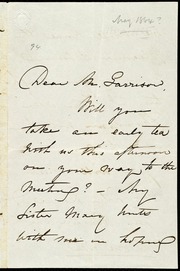 May 1864?
Dear Mr. Garrison,
Will you
take an early tea
with us this afternoon
on your way to the
Meeting? – My
Sister Mary unites
with me in hoping